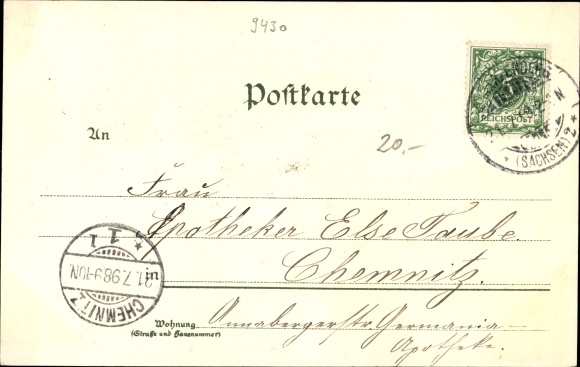 9430
Postkarte
REICHSPOST
(SACHSEN) 2
An
20.-
Frau
Apotheker Else Taube.
Chemnitz.
in
CHEMNITZ
21.7.98.9-10N
* 1 1
Wohnung
(Straße und Hausnummer)
Annabergerstr. Germania-
Apotheke.